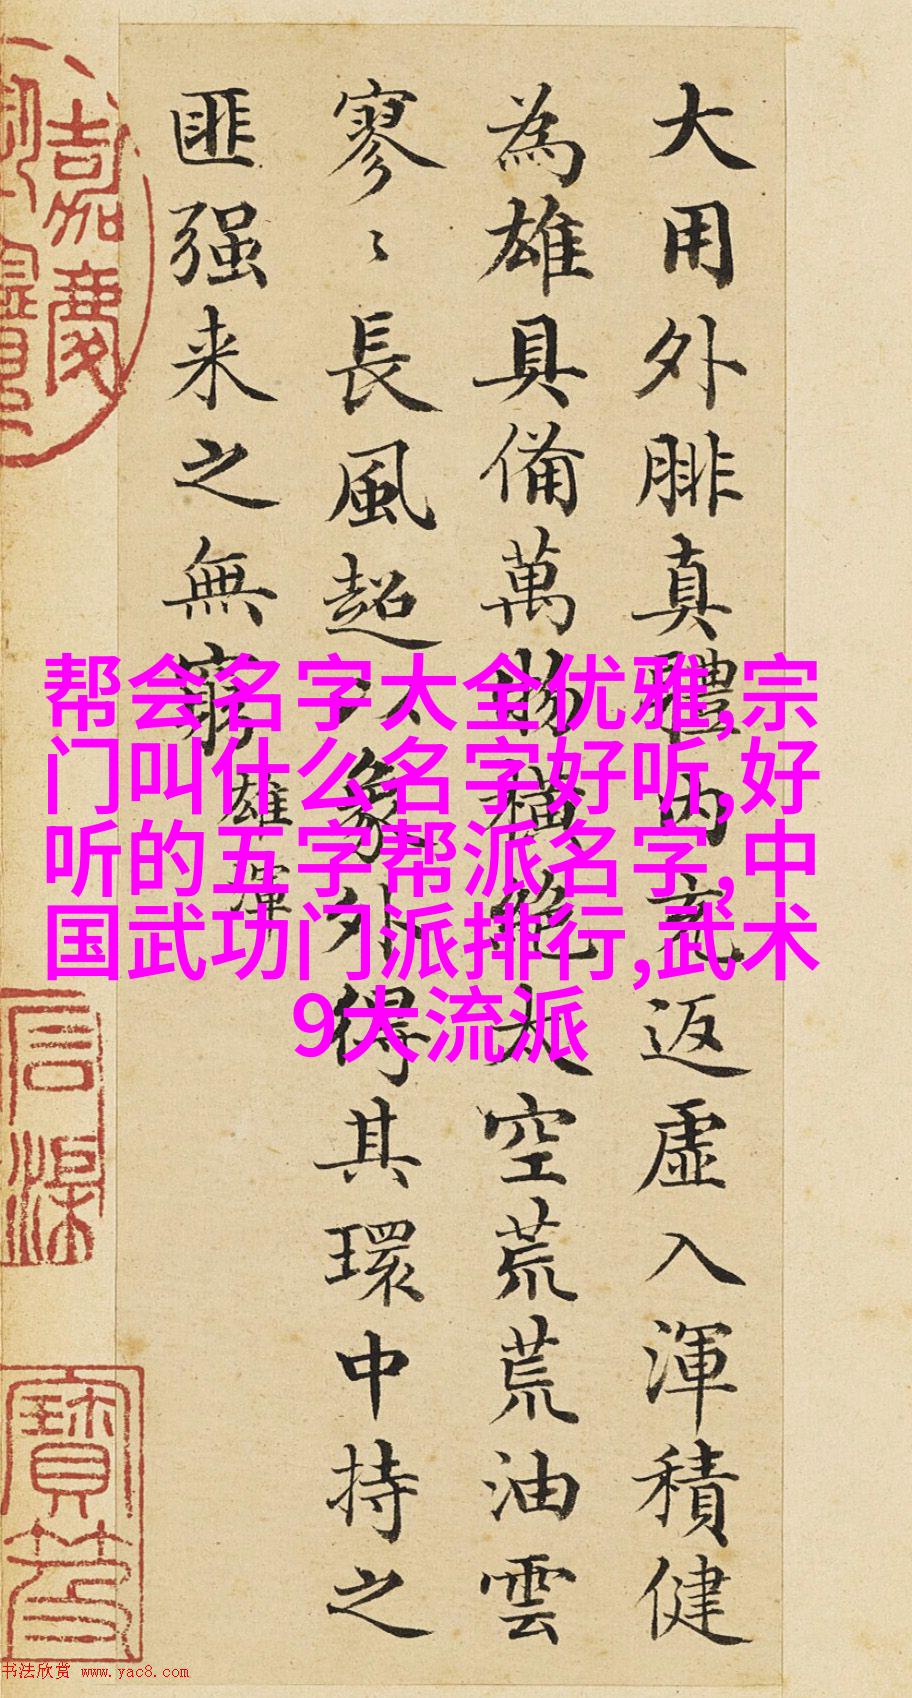 大用外腓真體内充返虛入渾積健
為雄具備萬物橫絕太空荒荒油雲
寥〻長風超以象外得其環中持之
匪强来之無窮
雄渾
帮会名字大全优雅,宗
门叫什么名字好听,好
听的五字帮派名字,中
国武功门派排行,武术
9大流派
嘉慶
石渠
寶笈
书法欣赏 www.yac8.com